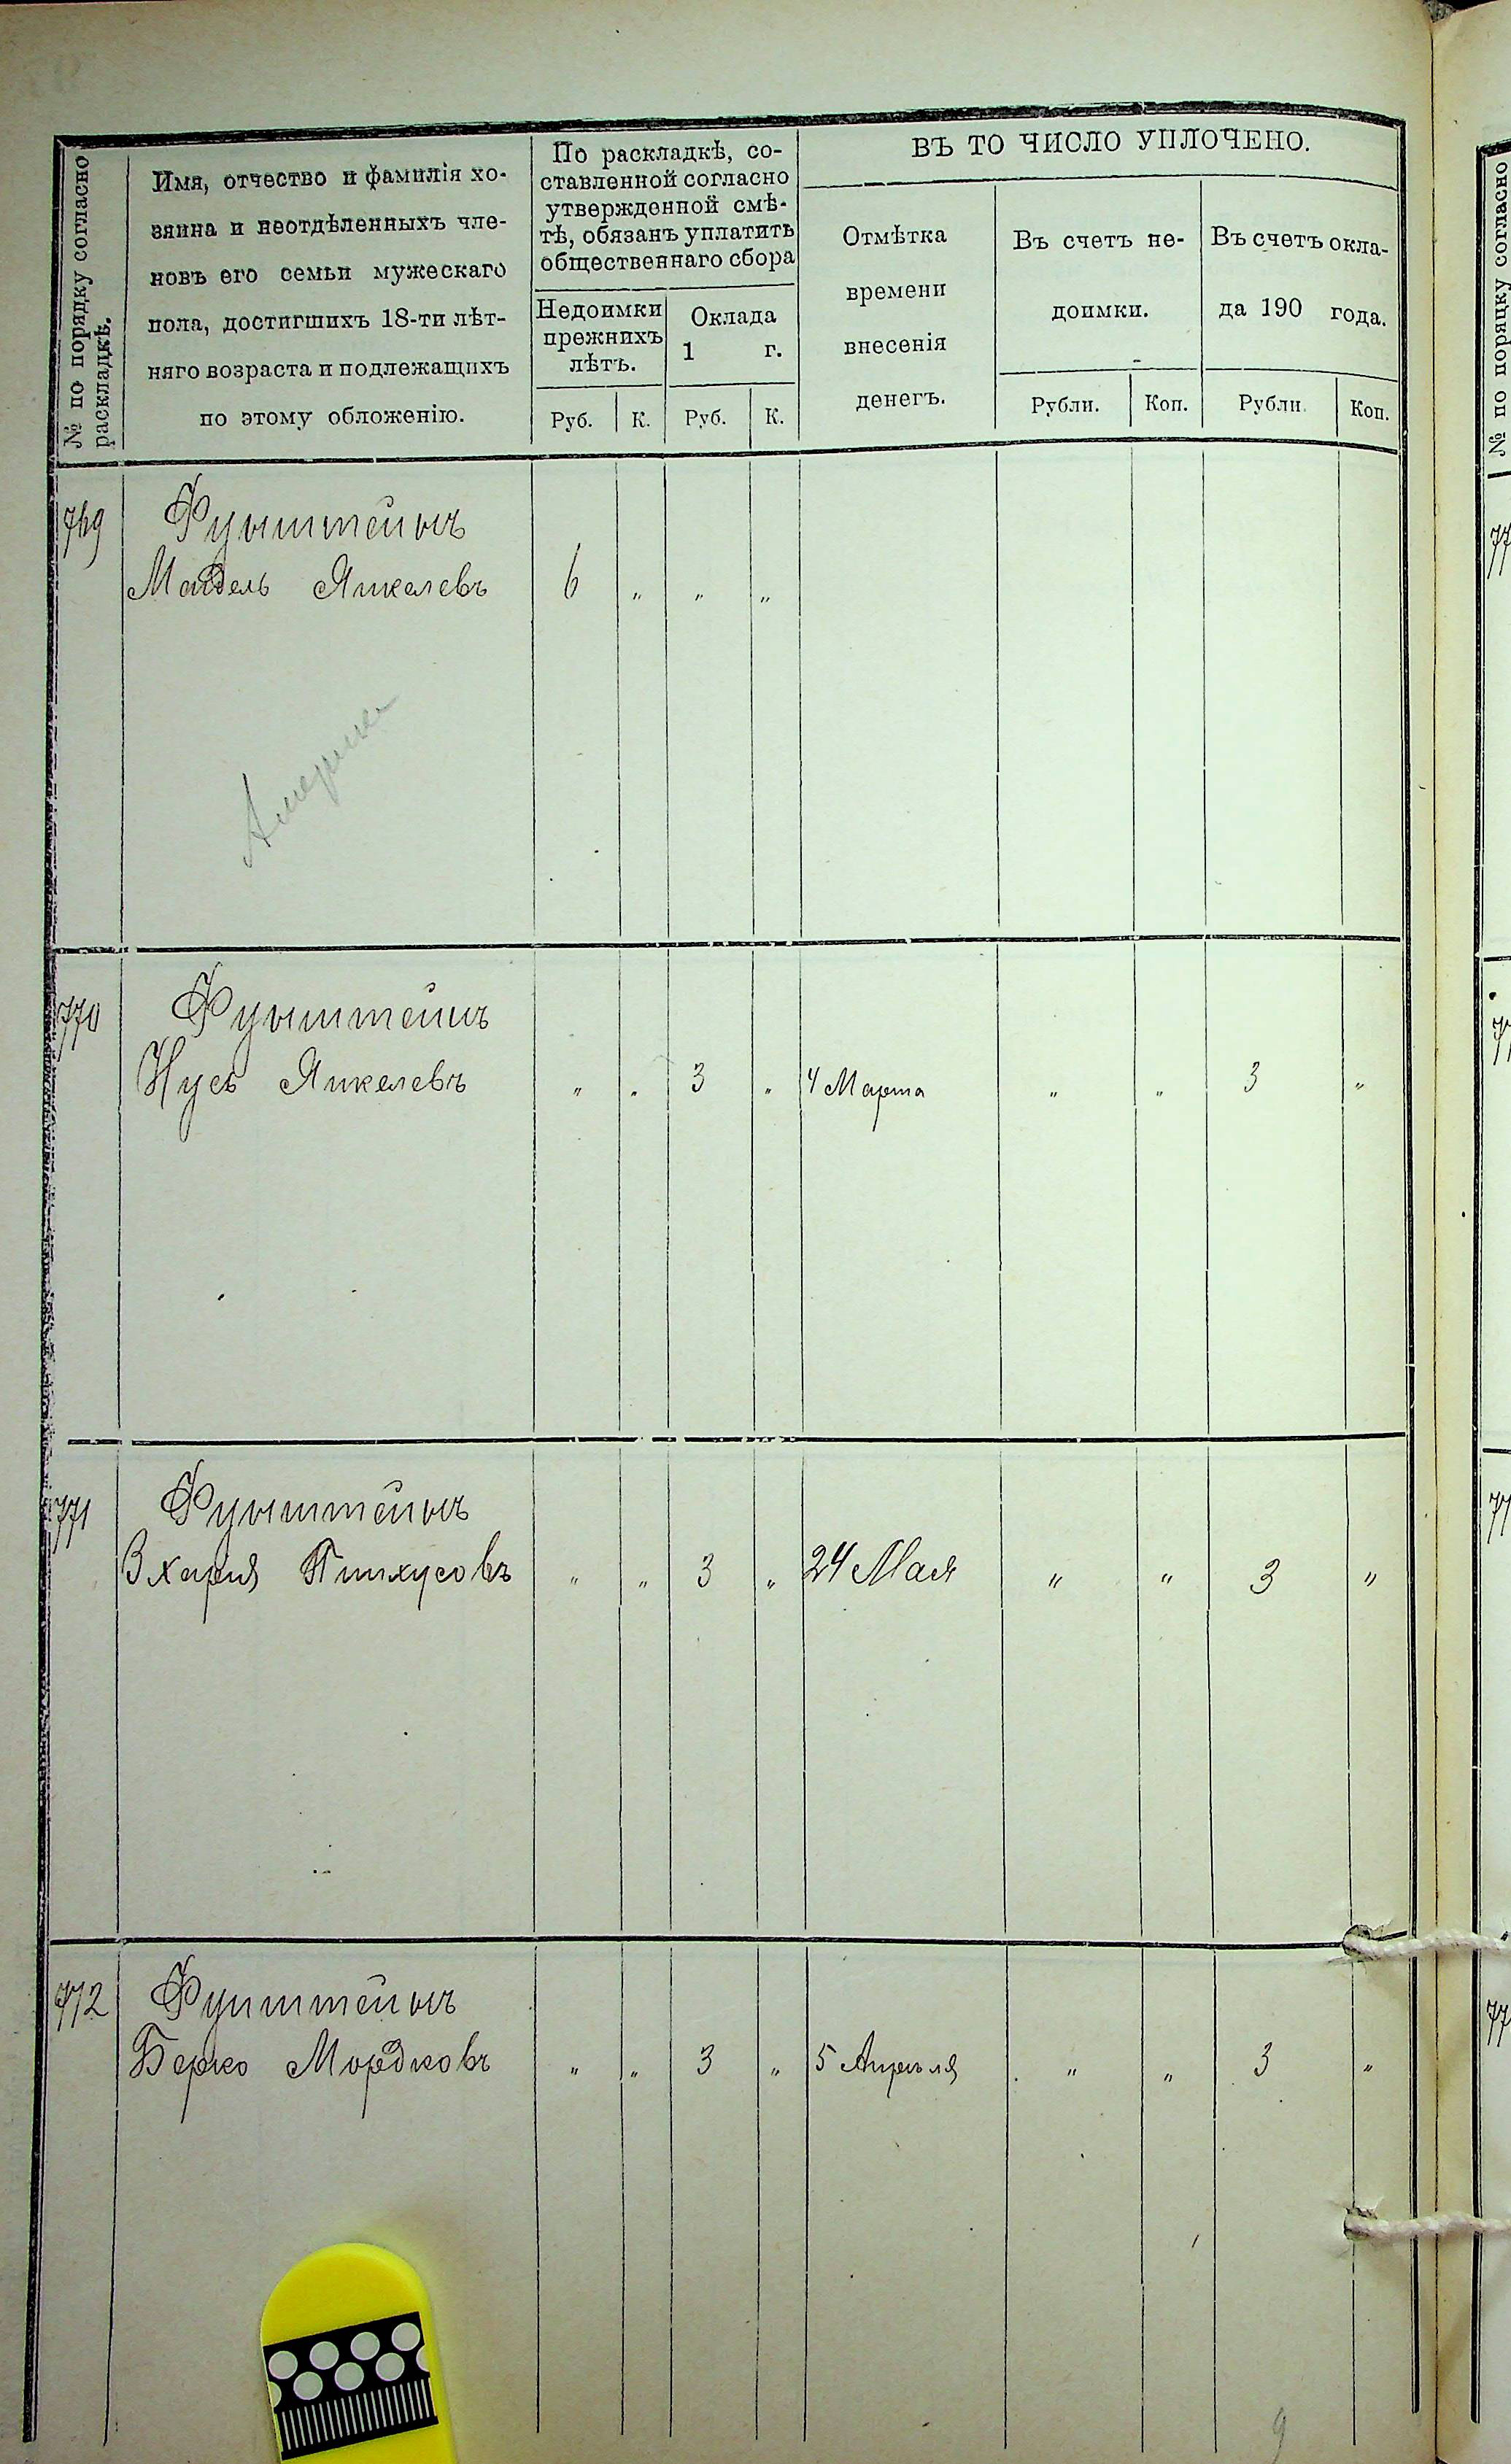 № по порядку согласно
раскладкѣ.
Имя, отчество и фамилія хо-
зяина и неотдѣленныхъ чле-
новъ его семьи мужескаго
пола, достигшихъ 18-ти лѣт-
няго возраста и подлежащихъ
по этому обложенію.
По раскладкѣ, со-
ставленной согласно
утвержденной смѣ-
тѣ, обязанъ уплатить
общественнаго сбора
Недоимки
прежнихъ
лѣтъ.
Оклада
1 г.
Руб. К. Руб. К.
ВЪ ТО ЧИСЛО УПЛОЧЕНО.
Отмѣтка
времени
внесенія
денегъ.
Въ счетъ не-
доимки.
Въ счетъ окла-
да 190 года.
Рубли. Коп. Рубли. Коп.
769 Фунштейнъ
Майдель Янкелевъ 6 „ „ „
Америка
770 Фунштейнъ
Нусь Янкелевъ „ „ 3 „ 4 Марта „ „ 3 „
771 Фунштейнъ
Зхарія Пинхусовъ „ „ 3 „ 24 Мая „ „ 3 „
772 Фунштейнъ
Берко Мордковъ „ „ 3 „ 5 Апрѣля „ „ 3 „
9
№ по порядку согласно